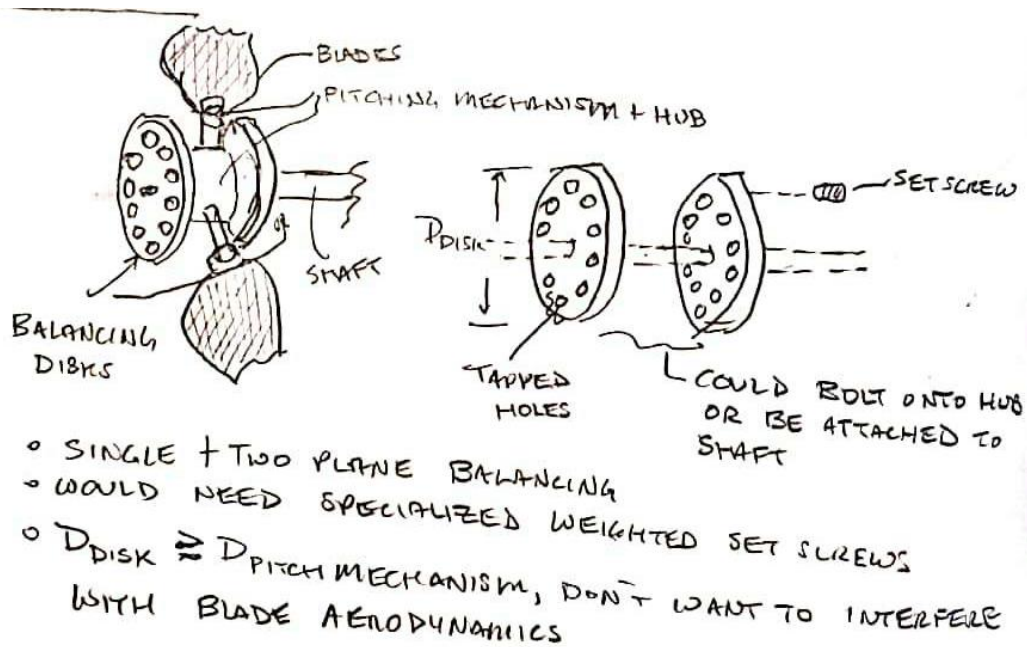 BLADES
PITCHING MECHANISM + HUB
SHAFT
BALANCING
DISKS
DDISK
SET SCREW
TAPPED
HOLES
COULD BOLT ONTO HUB
OR BE ATTACHED TO
SHAFT
• SINGLE + TWO PLANE BALANCING
• WOULD NEED SPECIALIZED WEIGHTED SET SCREWS
• DDISK ≥ DPITCH MECHANISM, DON'T WANT TO INTERFERE
WITH BLADE AERODYNAMICS